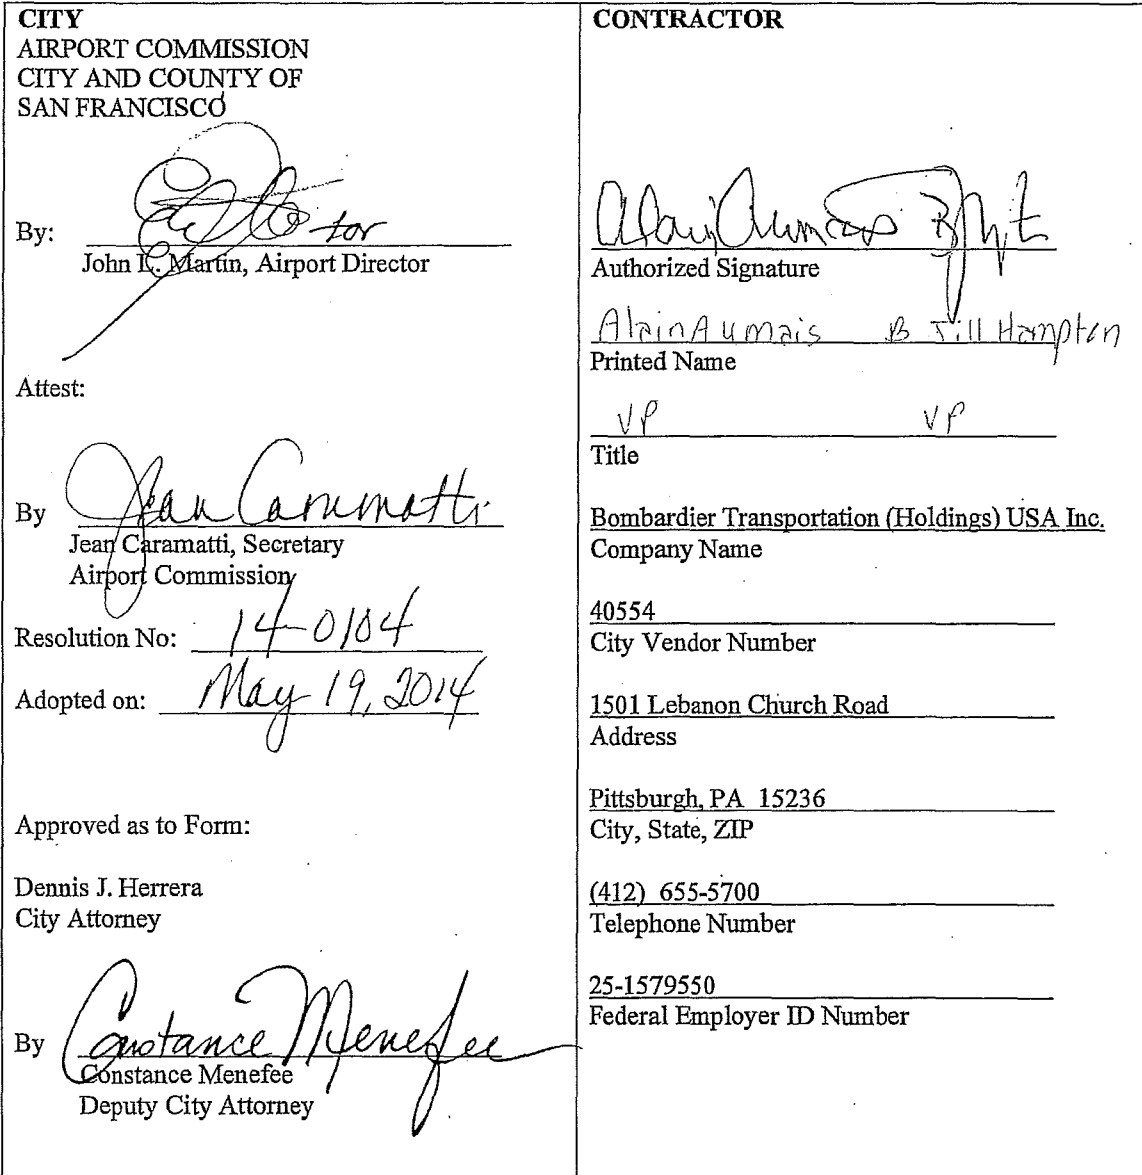 CITY
AIRPORT COMMISSION
CITY AND COUNTY OF
SAN FRANCISCO
By: for
John L. Martin, Airport Director
Attest:
By Jean Caramatti
Jean Caramatti, Secretary
Airport Commission
Resolution No: 14-0104
Adopted on: May 19, 2014
Approved as to Form:
Dennis J. Herrera
City Attorney
By Constance Menefee
Constance Menefee
Deputy City Attorney
CONTRACTOR
Alain Aumais
Authorized Signature
Alain Aumais B Jill Hampton
Printed Name
VP VP
Title
Bombardier Transportation (Holdings) USA Inc.
Company Name
40554
City Vendor Number
1501 Lebanon Church Road
Address
Pittsburgh, PA 15236
City, State, ZIP
(412) 655-5700
Telephone Number
25-1579550
Federal Employer ID Number